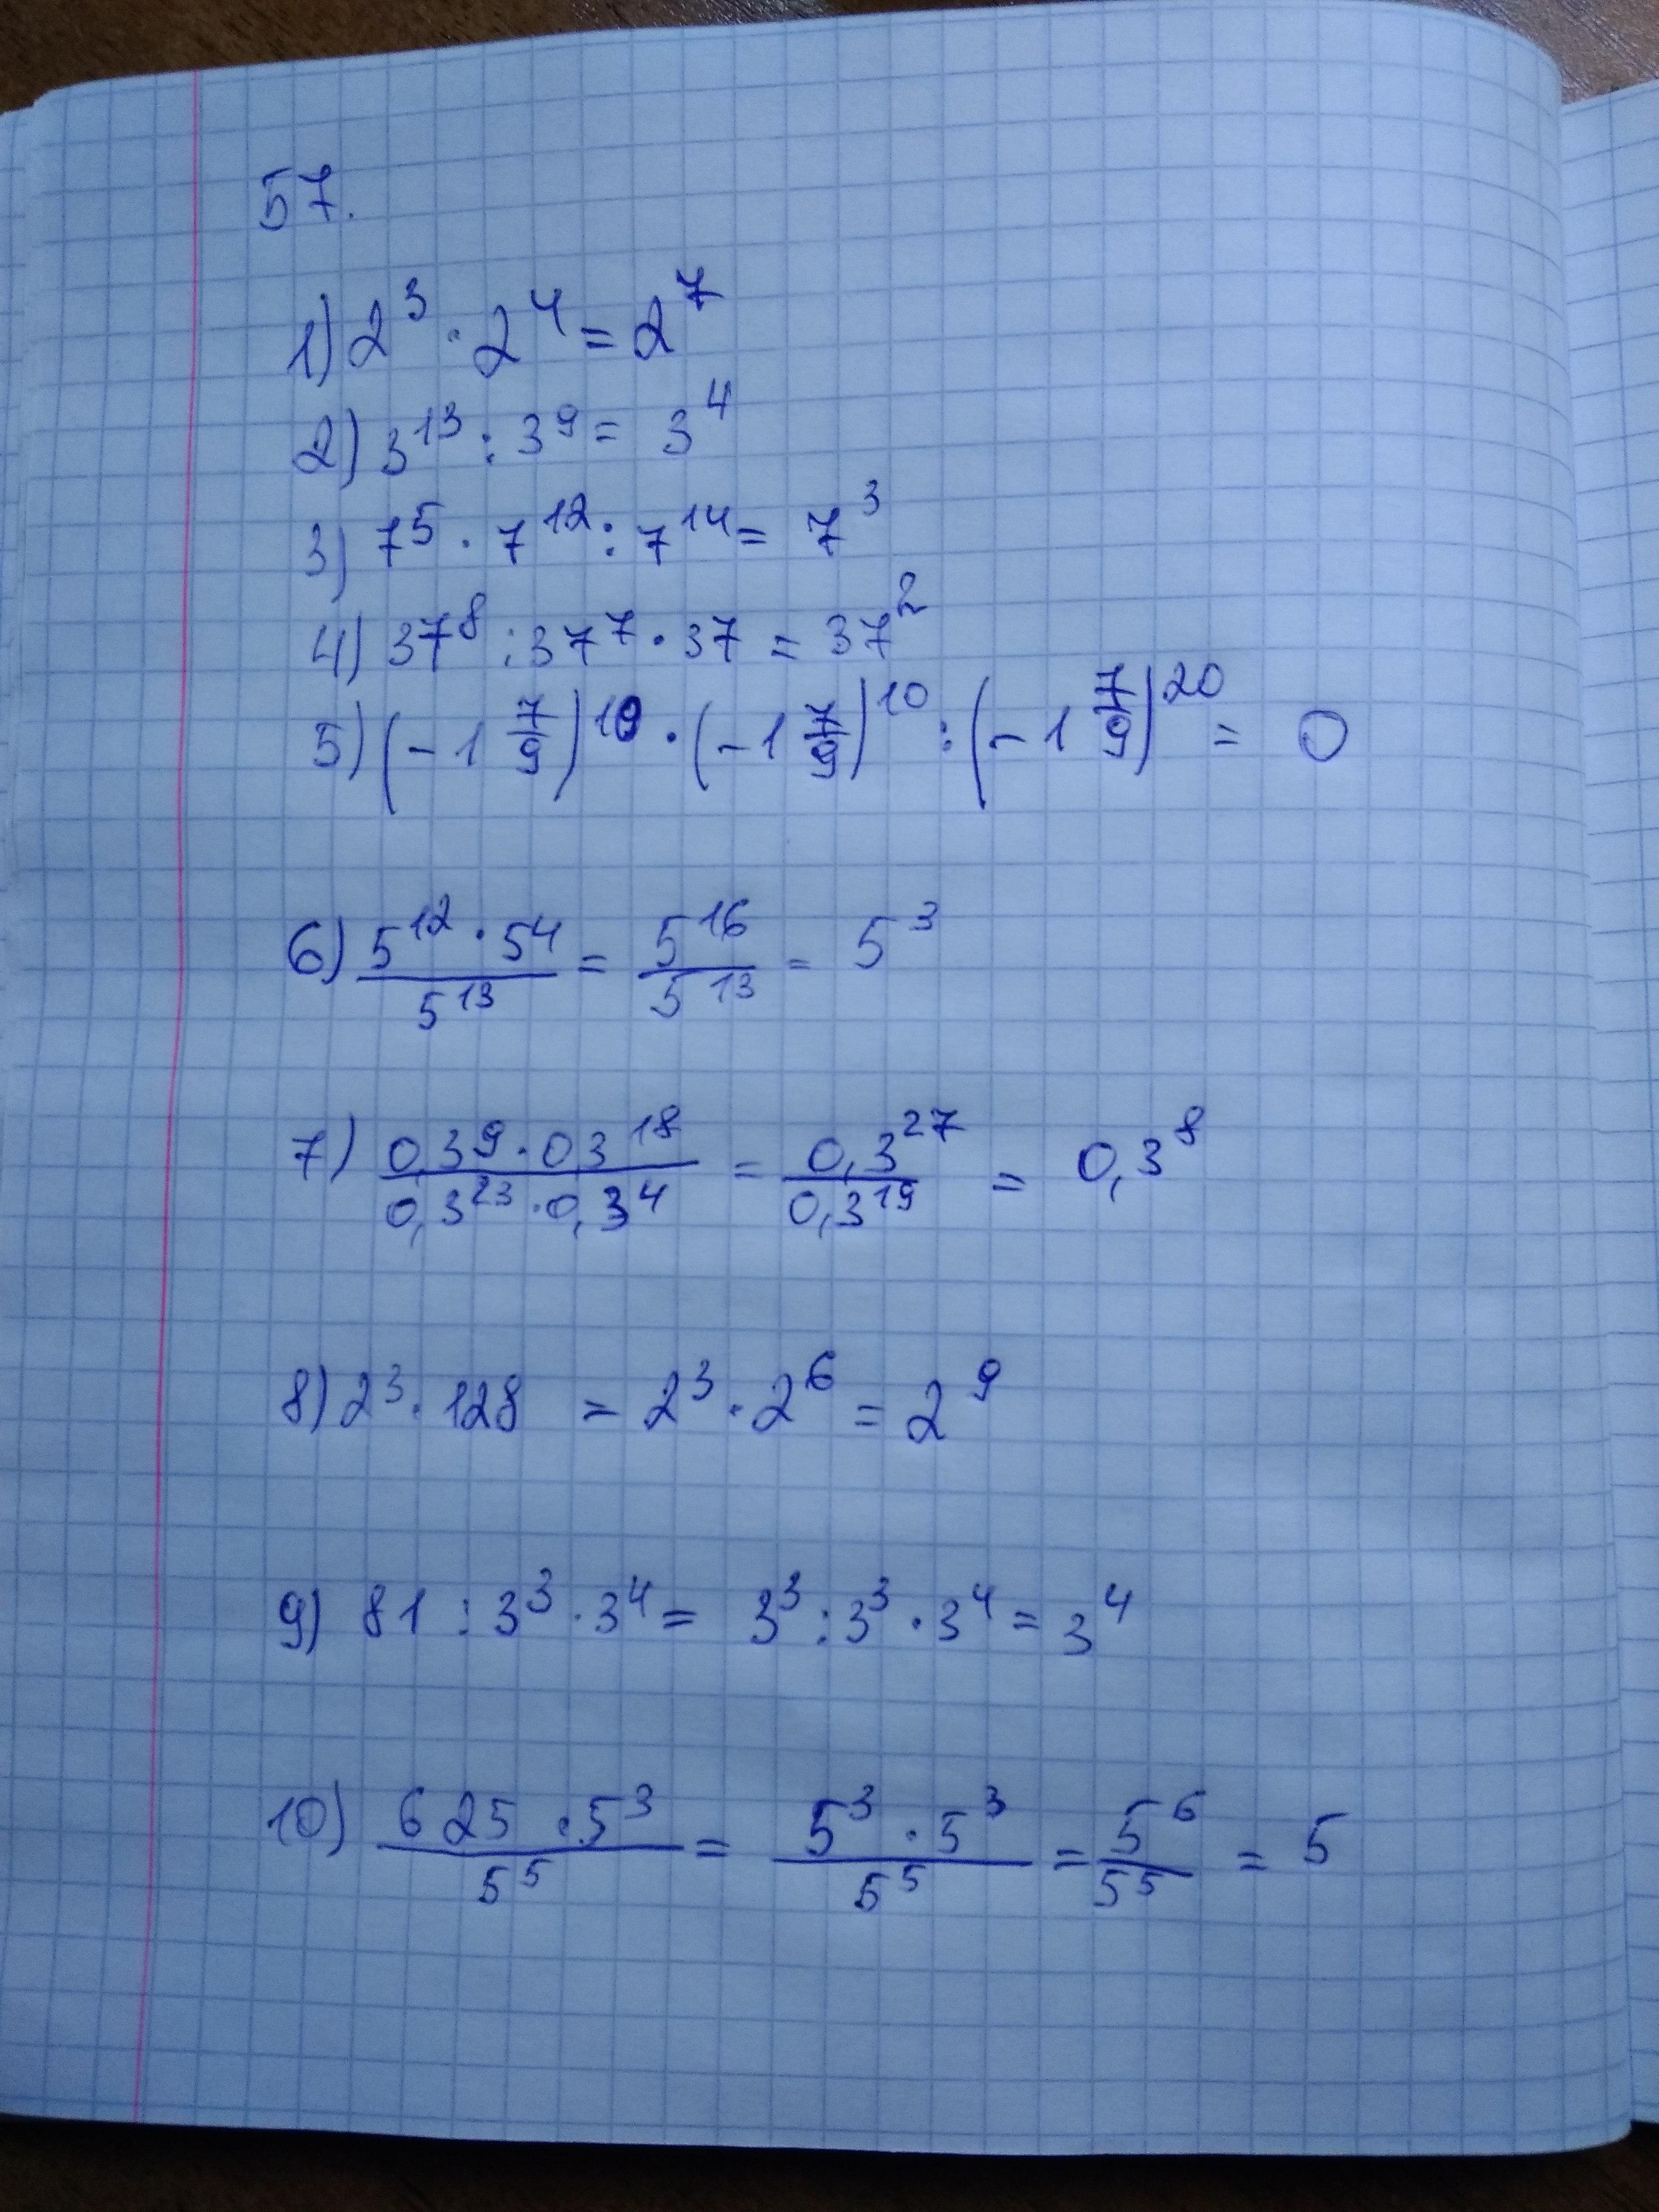 57.
1) 2³ · 2⁴ = 2⁷
2) 3¹³ : 3⁹ = 3⁴
3) 7⁵ · 7¹² : 7¹⁴ = 7³
4) 37⁸ : 37⁷ · 37 = 37²
5) (-1 7/9)¹⁰ · (-1 7/9)¹⁰ : (-1 7/9)²⁰ = 0
6) (5¹² · 5⁴)/5¹³ = 5¹⁶/5¹³ = 5³
7) (0,3⁹ · 03¹⁸)/(0,3²³ · 0,3⁴) = 0,3²⁷/0,3¹⁹ = 0,3⁸
8) 2³ · 128 = 2³ · 2⁶ = 2⁹
9) 81 : 3³ · 3⁴ = 3³ : 3³ · 3⁴ = 3⁴
10) (625 · 5³)/5⁵ = (5³ · 5³)/5⁵ = 5⁶/5⁵ = 5